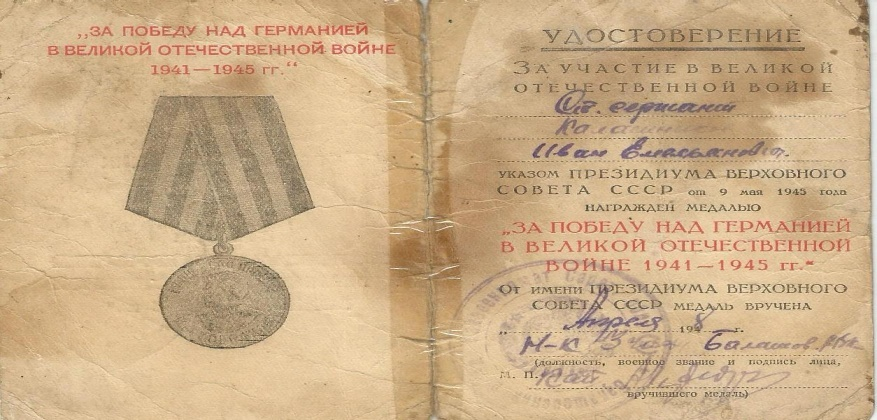 „ЗА ПОБЕДУ НАД ГЕРМАНИЕЙ
В ВЕЛИКОЙ ОТЕЧЕСТВЕННОЙ ВОЙНЕ
1941—1945 гг.“
УДОСТОВЕРЕНИЕ
ЗА УЧАСТИЕ В ВЕЛИКОЙ
ОТЕЧЕСТВЕННОЙ ВОЙНЕ
Ст. сержант
Иван Емельянович
УКАЗОМ ПРЕЗИДИУМА ВЕРХОВНОГО
СОВЕТА СССР от 9 мая 1945 года
НАГРАЖДЕН МЕДАЛЬЮ
„ЗА ПОБЕДУ НАД ГЕРМАНИЕЙ
В ВЕЛИКОЙ ОТЕЧЕСТВЕННОЙ
ВОЙНЕ 1941—1945 гг.“
ОТ ИМЕНИ ПРЕЗИДИУМА ВЕРХОВНОГО
СОВЕТА СССР МЕДАЛЬ ВРУЧЕНА
Апреля 1948 г.
Н-к
(должность, военное звание и подпись лица,
М. П.
вручившего медаль)